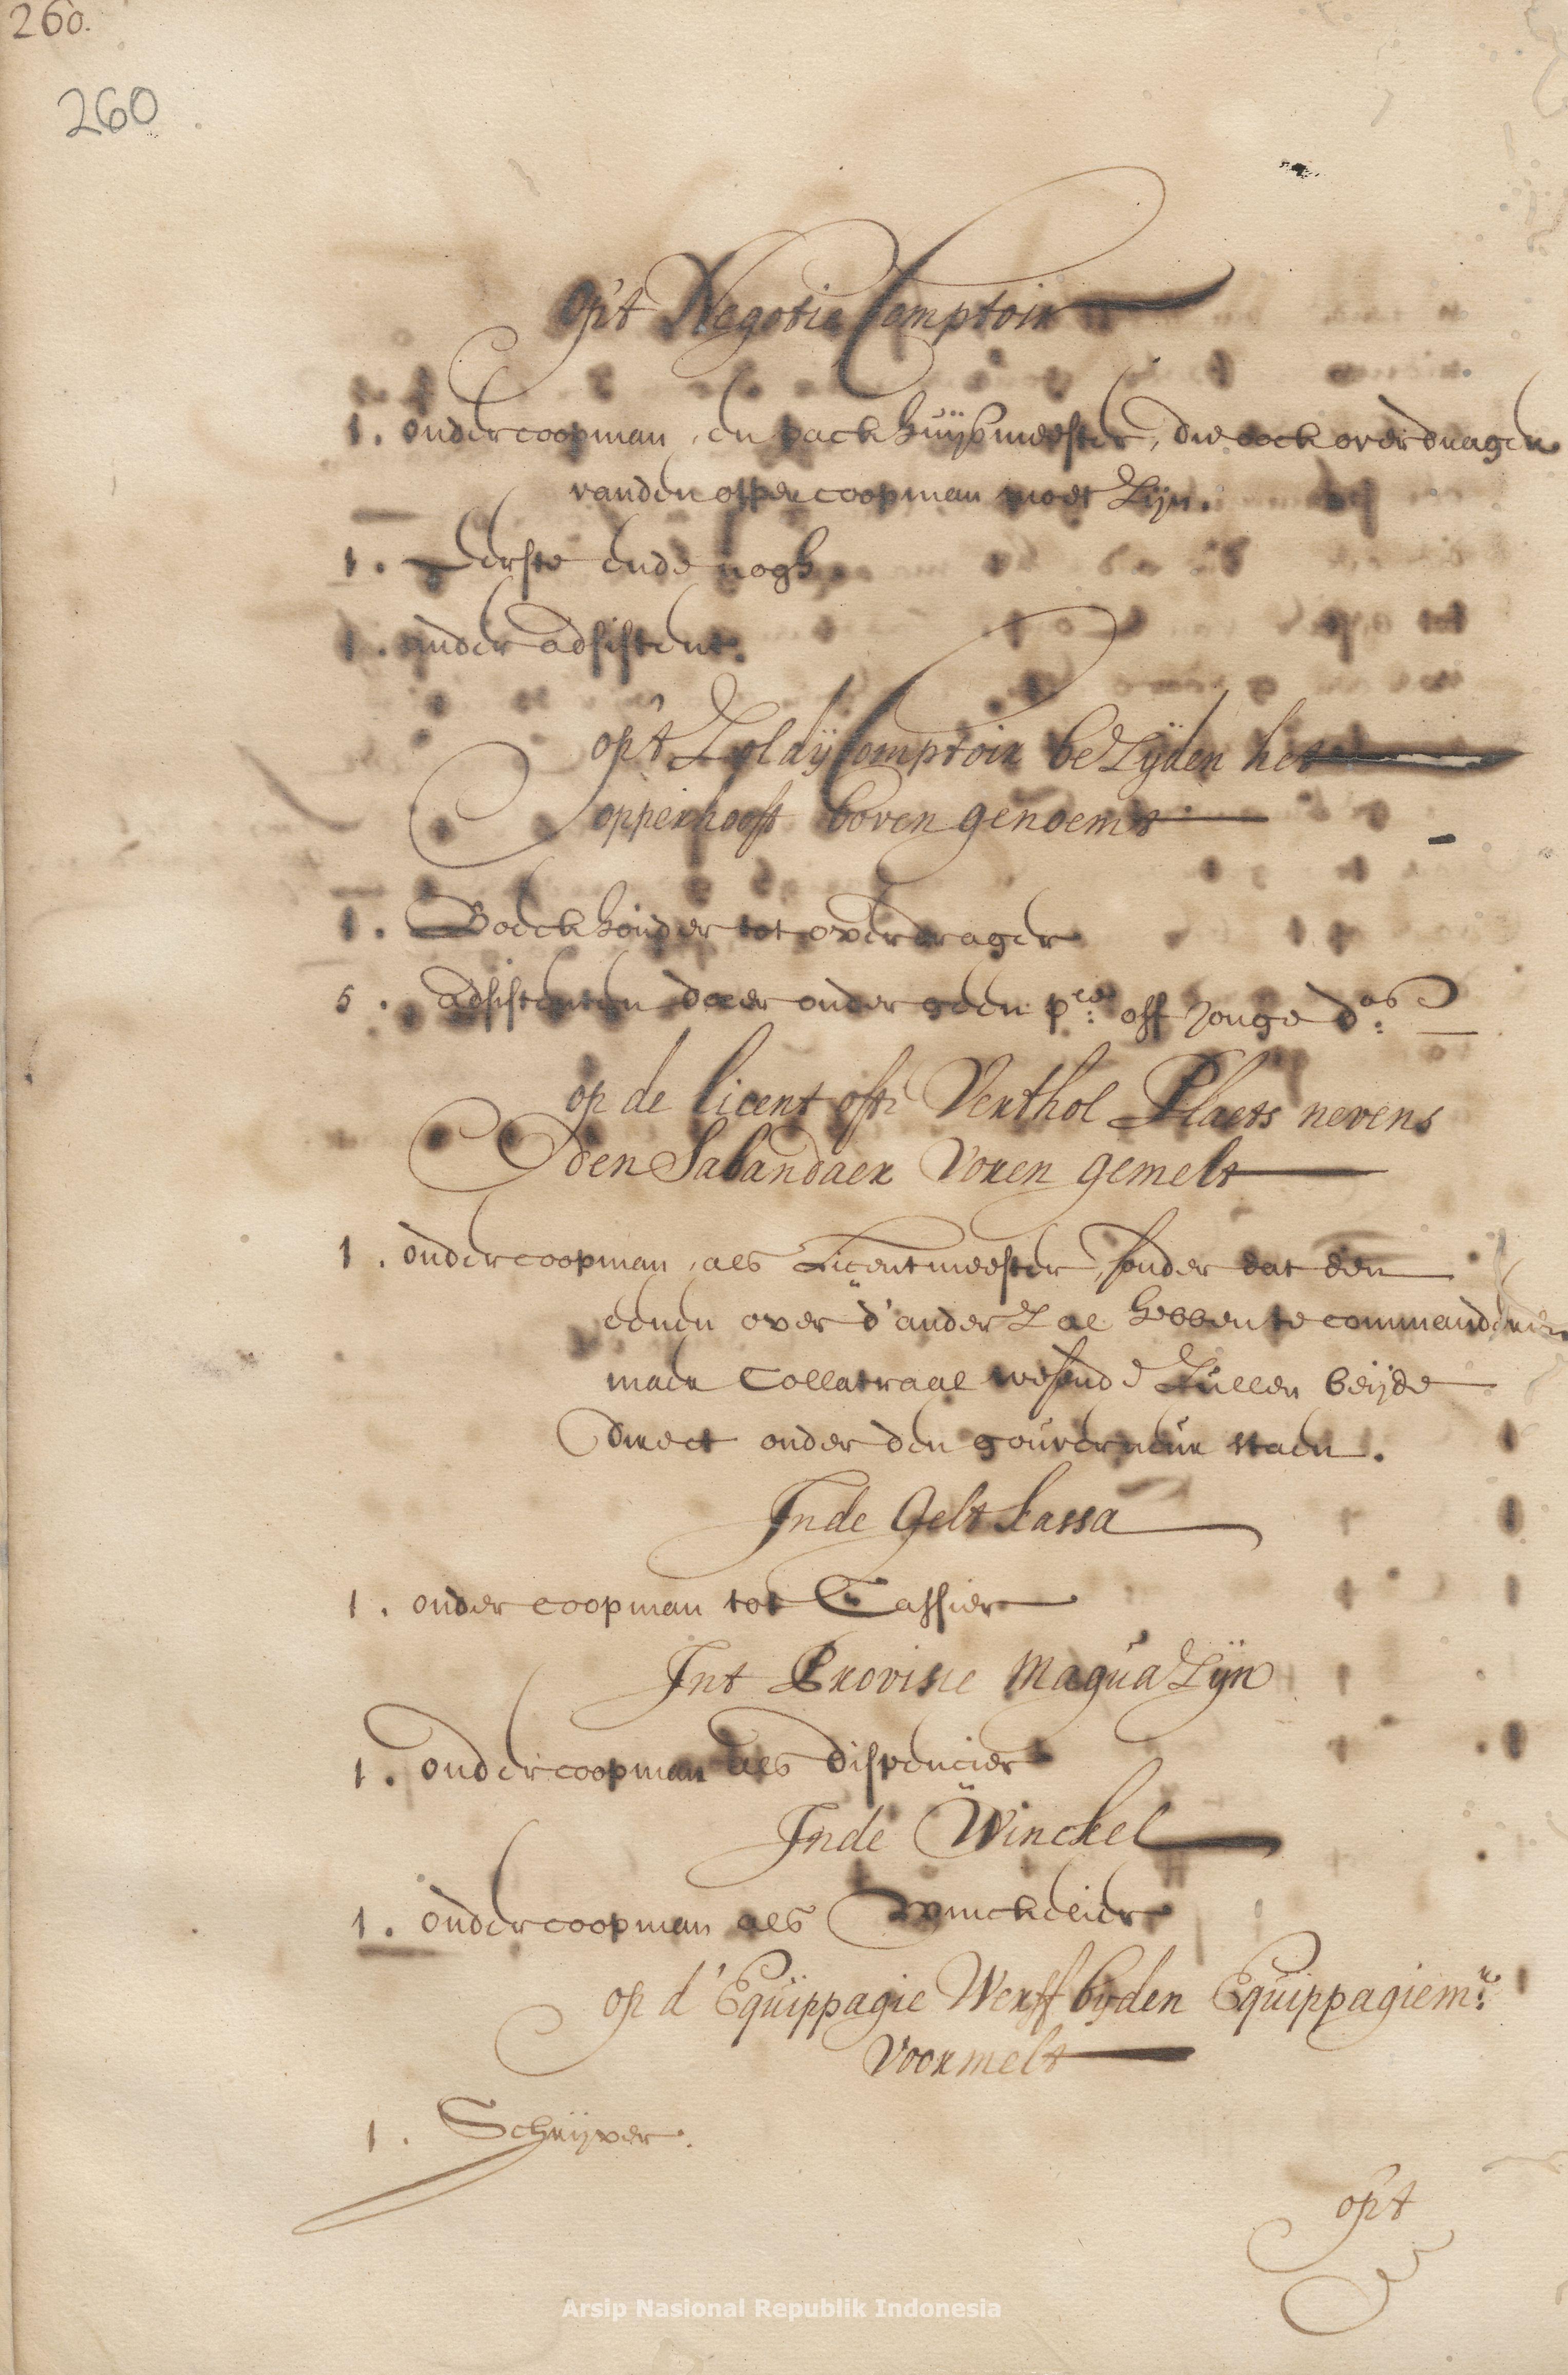 260.
260
Op't Negotie Comptoir
1. ondercoopman, en packhuijsmeester, die oock overdrager
vanden opper coopman moet zijn.
1. Eerste ende nogh
1. onder adsistent.
op't Zoldij Comptoir bezijden het
opperhooft boven genoemt
1. Boeckhouder tot overdrager
5. adsistenten daer onder geen p:ce off Jonge d:os
op de licent ofte Verthol Plaets nevens
den Sabandaer Voren gemelt
1. ondercoopman, als Licentmeester, sonder dat den
eenen over d'ander zal hebben te commanderen
maer Collatraal wesende zullen beijde
direct onder den gouverneur staen.
Inde Gelt Cassa
1. onder coopman tot Cassier
Int Provisie Maguazijn
1. ondercoopman als dispencier
Inde Winckel
1. ondercoopman als Winckelier
op d'Equippagie Werff bijden Equippagiem:r
Voormelt
1. Schrijver.
op't
Arsip Nasional Republik Indonesia